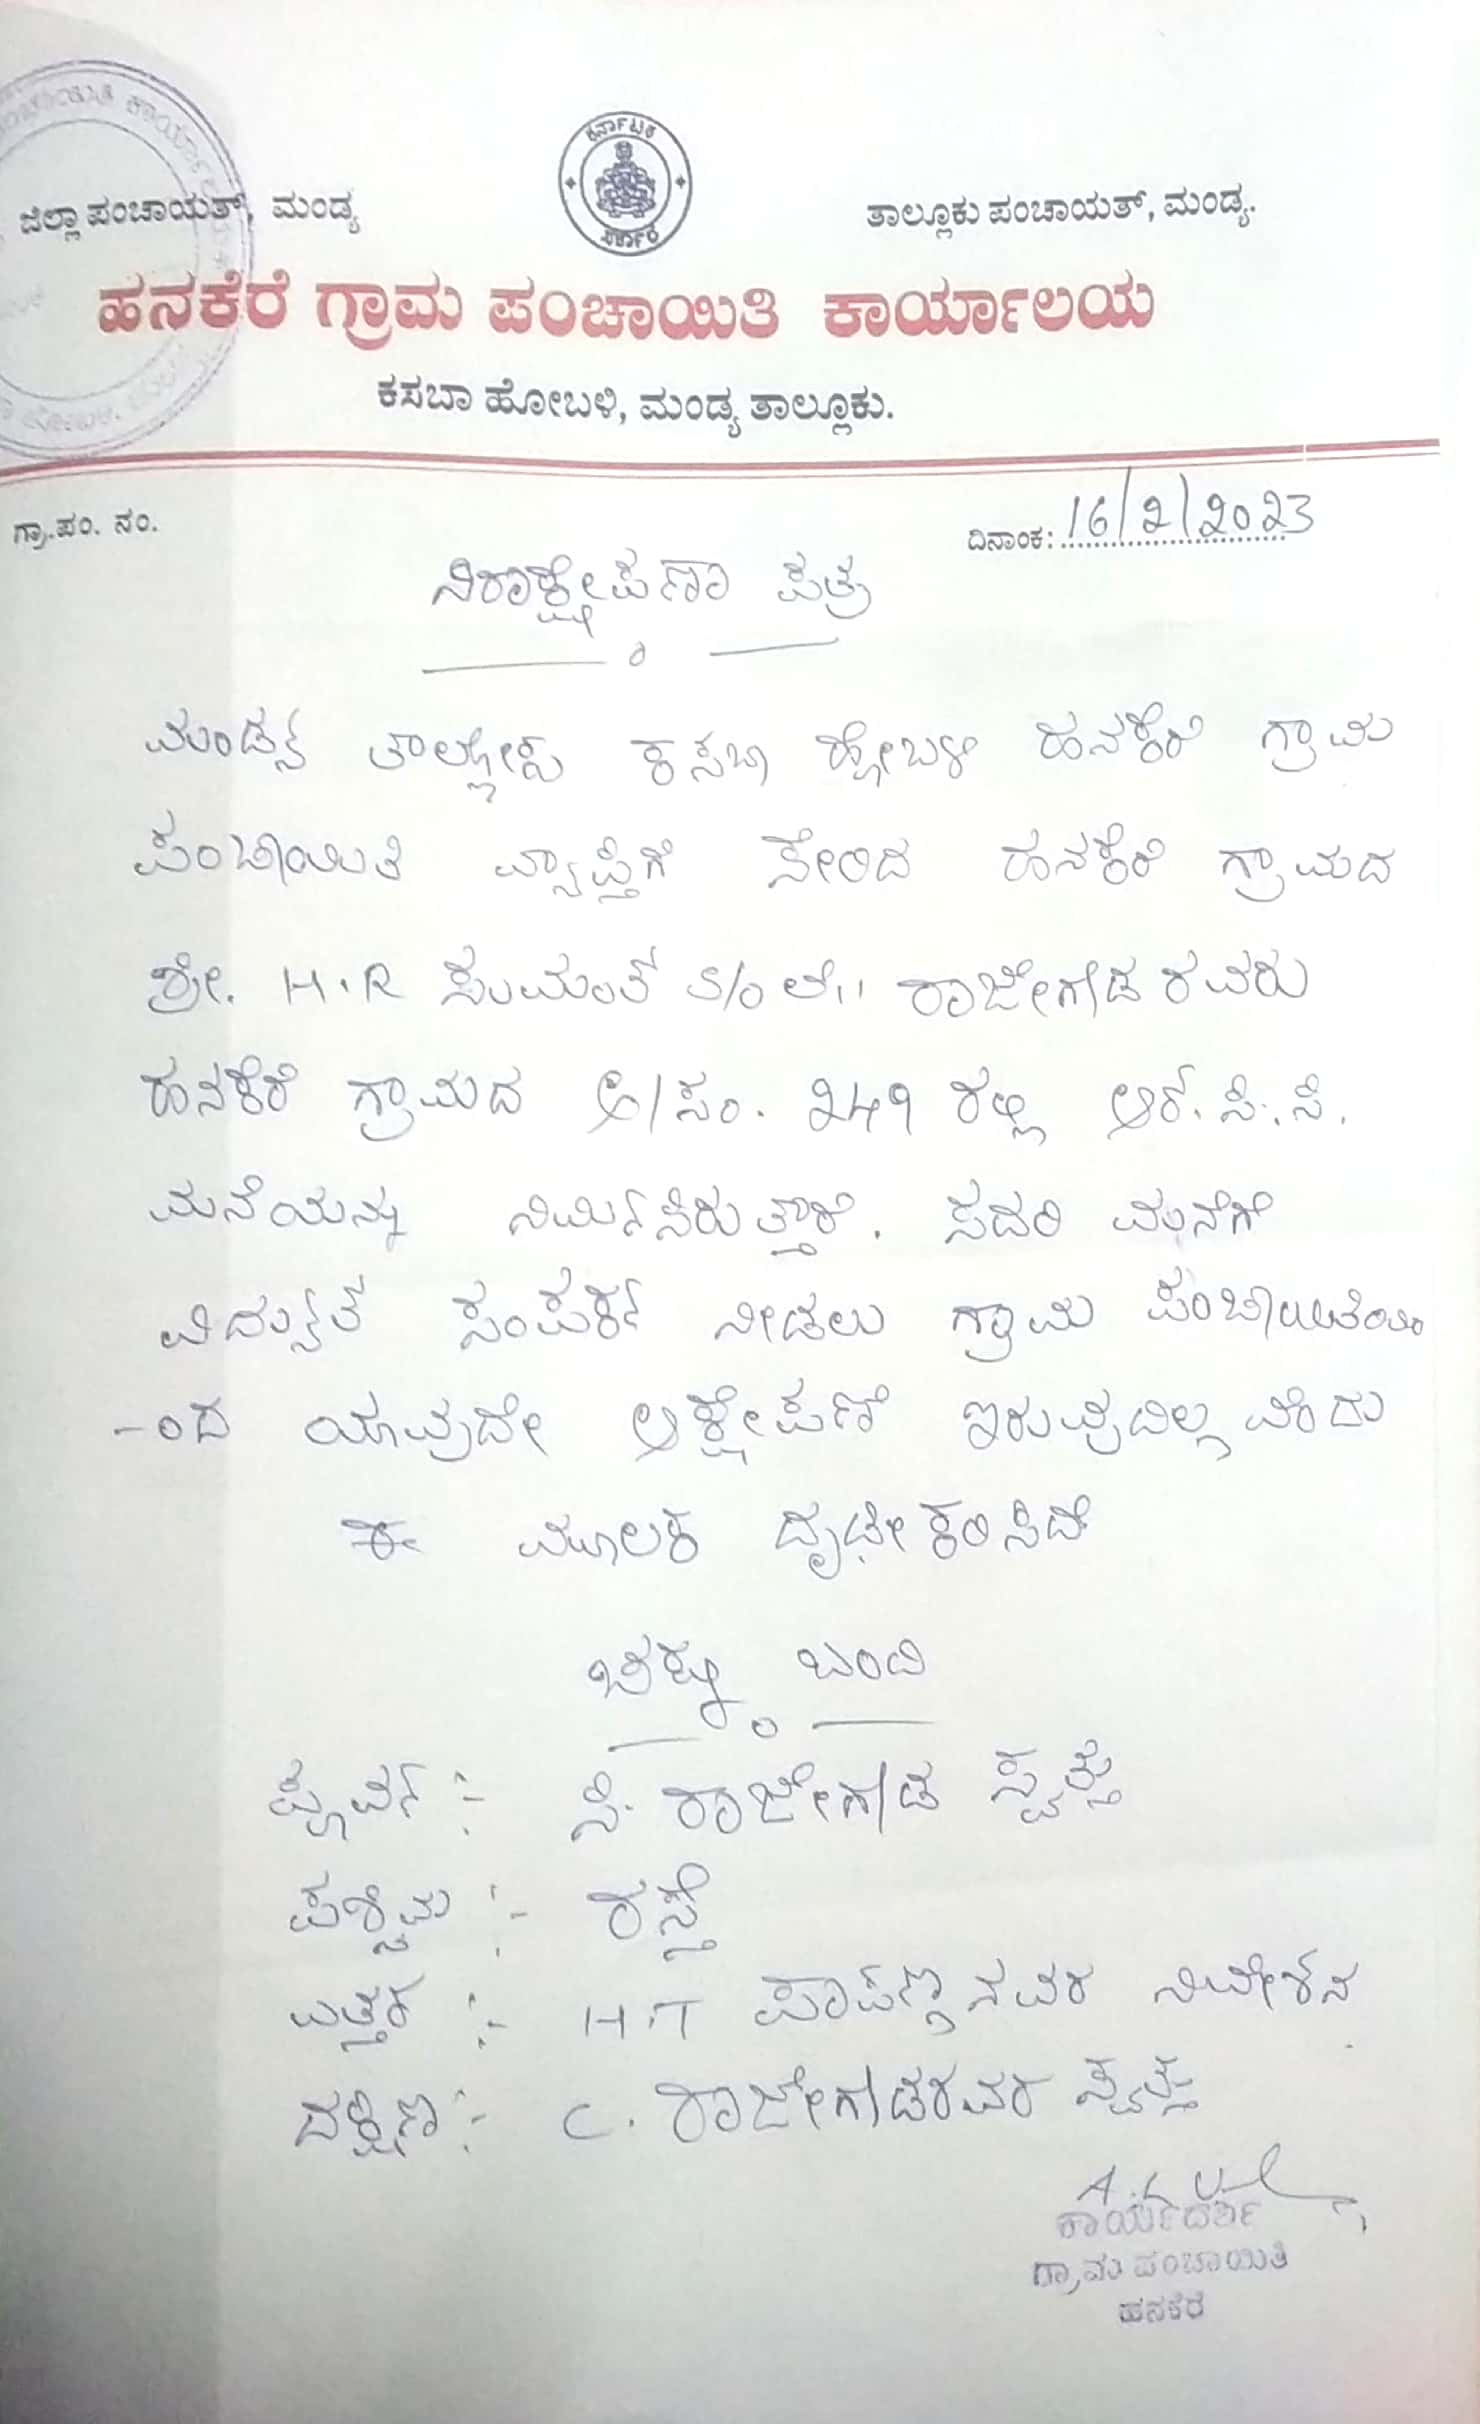 ಕರ್ನಾಟಕ
ಸರ್ಕಾರ
ಜಿಲ್ಲಾ ಪಂಚಾಯತ್, ಮಂಡ್ಯ
ತಾಲ್ಲೂಕು ಪಂಚಾಯತ್, ಮಂಡ್ಯ.
ಹನಕೆರೆ ಗ್ರಾಮ ಪಂಚಾಯಿತಿ ಕಾರ್ಯಾಲಯ
ಕಸಬಾ ಹೋಬಳಿ, ಮಂಡ್ಯ ತಾಲ್ಲೂಕು.
ಗ್ರಾ.ಪಂ. ನಂ.
ದಿನಾಂಕ: 16/2/2023
ನಿರಾಕ್ಷೇಪಣಾ ಪತ್ರ
ಮಂಡ್ಯ ತಾಲ್ಲೋಕು ಕಸಬಾ ಹೋಬಳಿ ಹನಕೆರೆ ಗ್ರಾಮ
ಪಂಚಾಯಿತಿ ವ್ಯಾಪ್ತಿಗೆ ಸೇರಿದ ಹನಕೆರೆ ಗ್ರಾಮದ
ಶ್ರೀ. H.R ಸುಮಂತ್ S/o ಲೇ।। ರಾಜೇಗೌಡ ರವರು
ಹನಕೆರೆ ಗ್ರಾಮದ ಅ/ಸಂ. 249 ರಲ್ಲಿ ಆರ್. ಸಿ. ಸಿ.
ಮನೆಯನ್ನು ನಿರ್ಮಿಸಿರುತ್ತಾರೆ. ಸದರಿ ಮನೆಗೆ
ವಿದ್ಯುತ್ ಸಂಪರ್ಕ ನೀಡಲು ಗ್ರಾಮ ಪಂಚಾಯಿತಿಯಿ
-ಂದ ಯಾವುದೇ ಆಕ್ಷೇಪಣೆ ಇರುವುದಿಲ್ಲ ವೆಂದು
ಈ ಮೂಲಕ ದೃಢೀಕರಿಸಿದೆ
ಚಕ್ಕು ಬಂದಿ
ಪೂರ್ವ :- ಸಿ. ರಾಜೇಗೌಡ ಸ್ವತ್ತು
ಪಶ್ಚಿಮ :- ರಸ್ತೆ
ಉತ್ತರ :- H.T ಪಾಪಣ್ಣ ನವರ ನಿವೇಶನ
ದಕ್ಷಿಣ :- C. ರಾಜೇಗೌಡರವರ ಸ್ವತ್ತು
ಕಾರ್ಯದರ್ಶಿ
ಗ್ರಾಮ ಪಂಚಾಯಿತಿ
ಹನಕೆರೆ